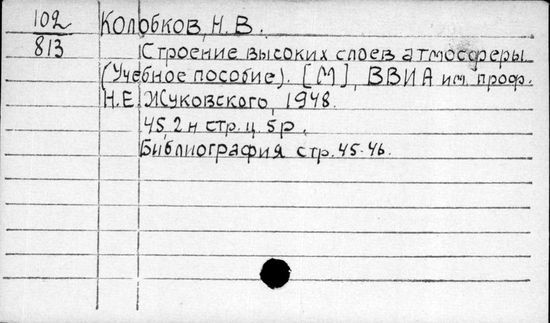 102 Колобков, Н. В.
813 Строение высоких слоев атмосферы
(Учебное пособие). [М], ВВИА им. проф.
Н.Е. Жуковского, 1948.
45, 2 н стр. ц. 5р.
Библиография стр. 45-46.